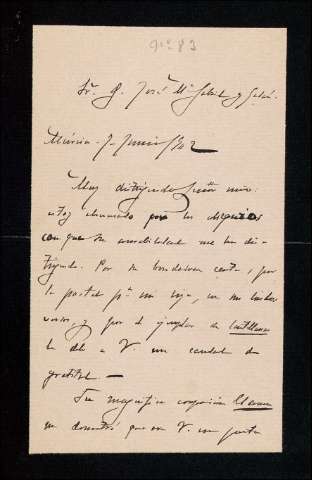 nº 83
Sr. D. José Mª Gabriel y Galán.
Murcia - 7 - Junio
Muy distinguido Señor mío:
estoy abrumado por los
con que su amabilidad me ha dis-
tinguido. Por su bondadosa carta, por
la postal pª mi hija, con
versos, y por el ejemplar de Castellanas
le debo a V. un caudal de
gratitud. —
Su magnífica composición
me demostró que en V. un poeta